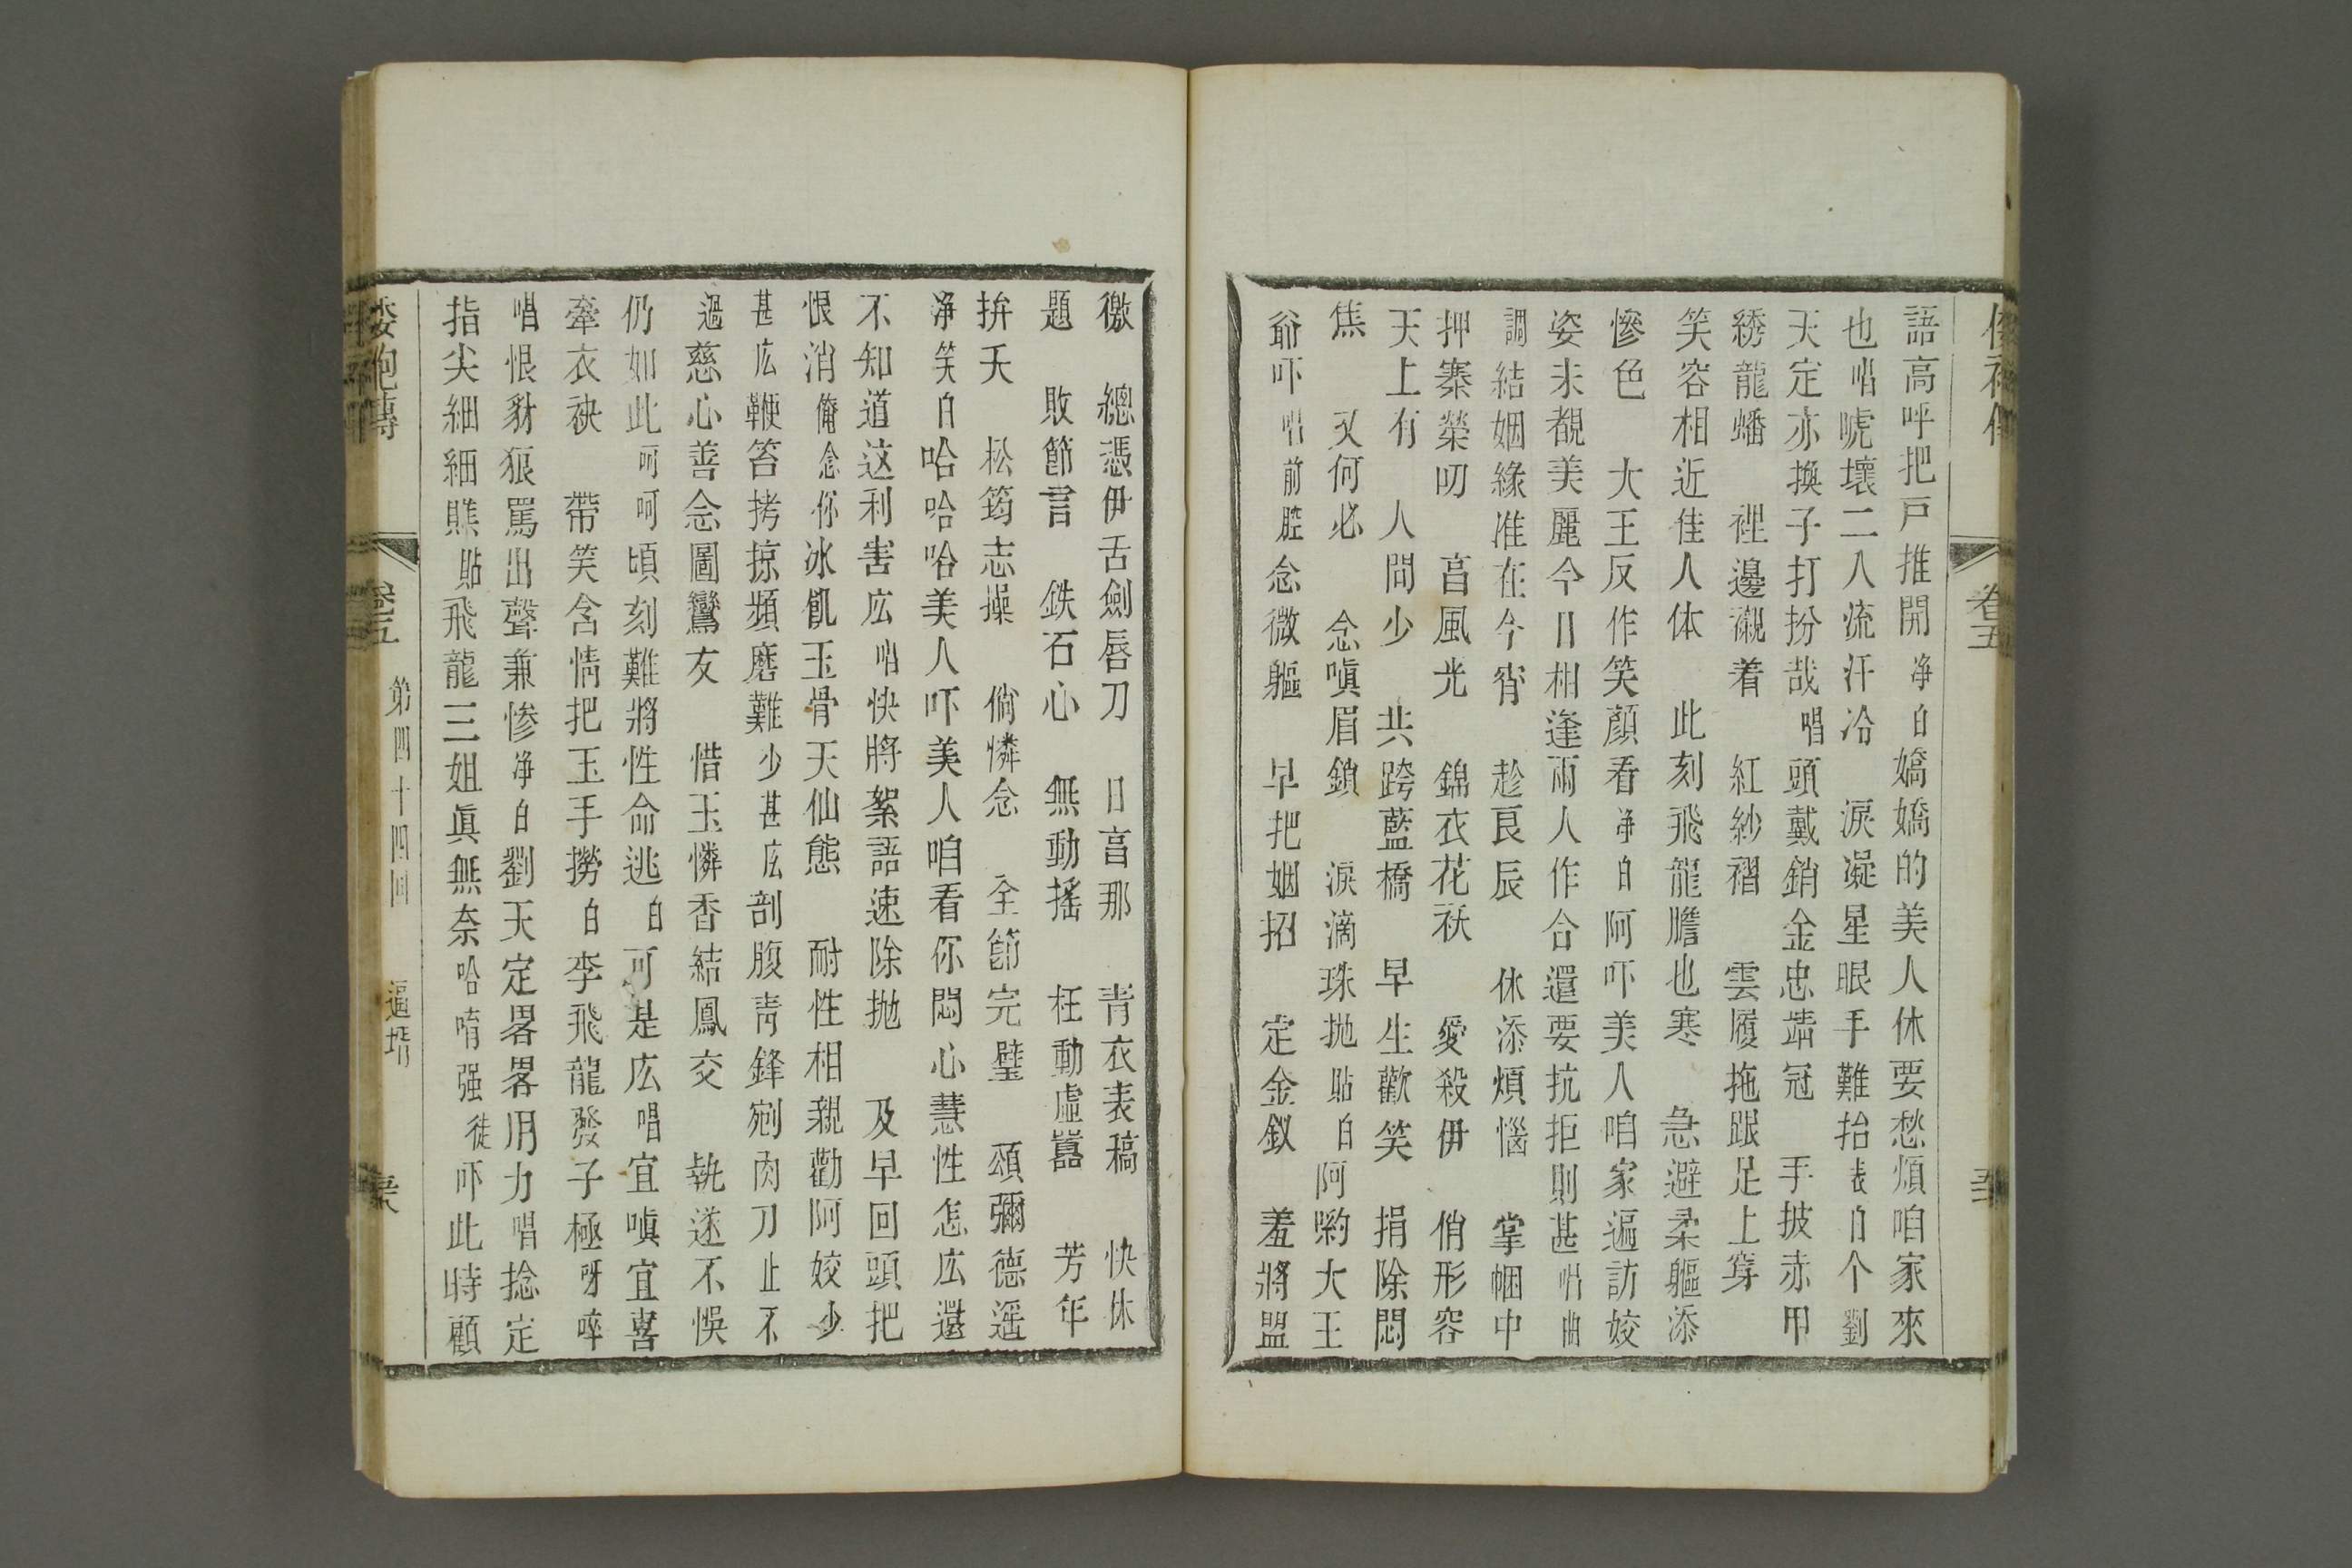 卷五
語高呼把戸推開淨白嬌嬌的美人休要愁煩咱家來
也唱唬壞二人流汗冷 淚凝星眼手難抬表白个劉
天定亦換子打扮哉唱頭戴銷金忠靖冠 手披赤甲
綉龍蟠 裡邊襯着 紅紗褶 雲履拖跟足上穿
笑容相近佳人体 此刻飛龍膽也寒 急避柔軀添
慘色 大王反作笑顏看淨白阿吓美人咱家遍訪姣
姿未覩美麗今日相逢兩人作合還要抗拒則甚唱曲
調結姻緣准在今宵 趁良辰 休添煩惱 掌幗中
押寨榮叨 莒風光 錦衣花袄 愛殺伊 俏形容
天上有 人間少 共跨藍橋 早生歡笑 捐除悶
焦 又何必 念嗔眉鎖 淚滴珠抛貼白阿喲大王
爺吓唱前腔念微軀 早把姻招 定金釵 羞將盟
徼 總憑伊舌劍唇刀 日莒那 青衣表稿 快休
題 敗節言 鉄石心 無動摇 枉動虛囂 芳年
拚夭 松筠志操 倘憐念 全節完璧 頌彌德遥
淨笑白哈哈哈美人吓美人咱看你悶心慧性怎広還
不知道这利害広唱快將絮語速除抛 及早回頭把
恨消俺念你冰飢玉骨天仙態 耐性相親勸阿姣少
甚広鞭笞拷掠頻磨難少甚広剖腹青鋒剜肉刀止不
過慈心善念圖鸞友 惜玉憐香結鳳交 執迷不悞
仍如此呵呵頃刻難將性命逃白可是広唱宜嗔宜喜
牽衣袂 帶笑含情把玉手撈白李飛龍發子極呀啐
唱恨豺狼罵出聲兼慘淨白劉天定畧畧用力唱捻定
指尖細細瞧貼飛龍三姐眞無奈哈唷强徒吓此時顧
倭袍傳 卷五 第四十四回 逼婿